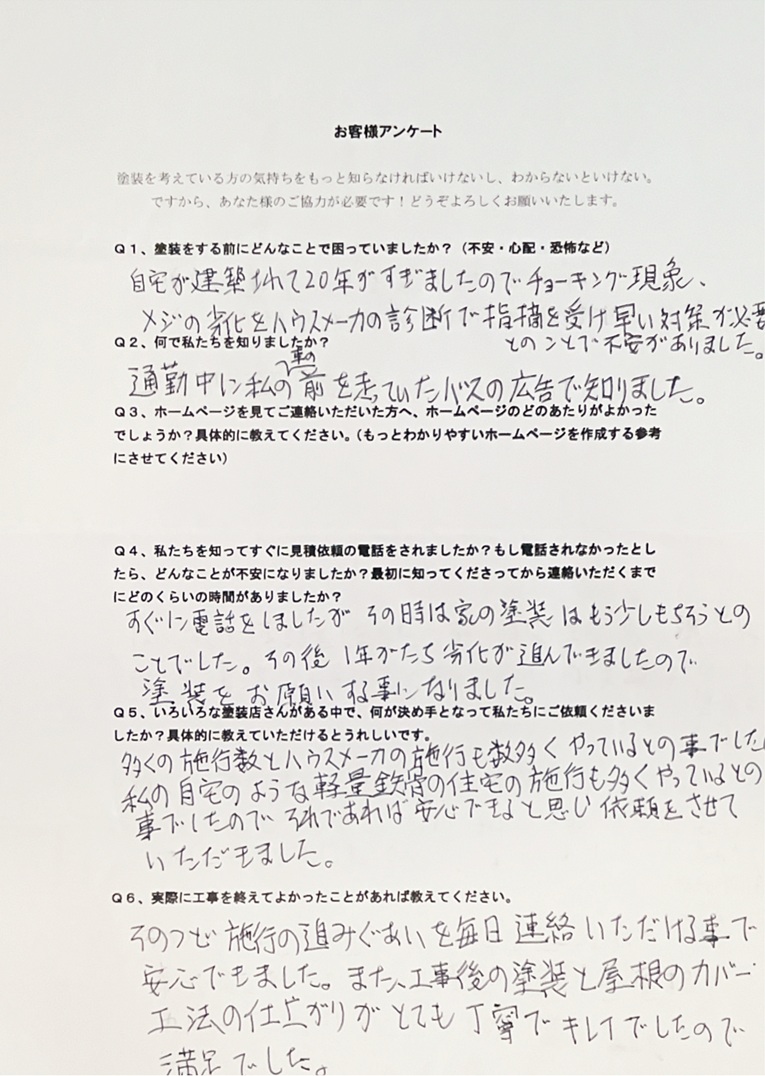 お客様アンケート
塗装を考えている方の気持ちをもっと知らなければいけないし、わからないといけない。
ですから、あなた様のご協力が必要です！どうぞよろしくお願いいたします。
Ｑ１、塗装をする前にどんなことで困っていましたか？（不安・心配・恐怖など）
自宅が建築されて20年がすぎましたのでチョーキング現象、
メジの劣化をハウスメーカの診断で指摘を受け早い対策が必要
とのことで不安がありました。
Ｑ２、何で私たちを知りましたか？
通勤中に私の車の前を走っていたバスの広告で知りました。
Ｑ３、ホームページを見てご連絡いただいた方へ、ホームページのどのあたりがよかった
でしょうか？具体的に教えてください。（もっとわかりやすいホームページを作成する参考
にさせてください）
Ｑ４、私たちを知ってすぐに見積依頼の電話をされましたか？もし電話されなかったとし
たら、どんなことが不安になりましたか？最初に知ってくださってから連絡いただくまで
にどのくらいの時間がありましたか？
すぐに電話をしましたが その時は家の塗装はもう少しもちそうとの
ことでした。その後 1年がたち劣化が進んできましたので
塗装をお願いする事になりました。
Ｑ５、いろいろな塗装店さんがある中で、何が決め手となって私たちにご依頼くださいま
したか？具体的に教えていただけるとうれしいです。
多くの施行数とハウスメーカの施行も数多くやっているとの事でした
私の自宅のような軽量鉄骨の住宅の施行も多くやっているとの
事でしたので それであれば安心できると思い依頼をさせて
いただきました。
Ｑ６、実際に工事を終えてよかったことがあれば教えてください。
そのつど施行の進みぐあいを毎日連絡いただける事で
安心できました。また、工事後の塗装と屋根のカバー
工法の仕上がりがとても丁寧でキレイでしたので
満足でした。